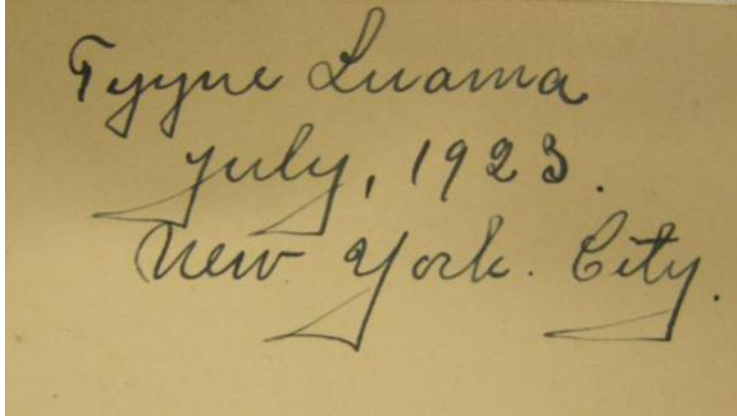 Tyyne Luoma
July, 1923.
New York. City.